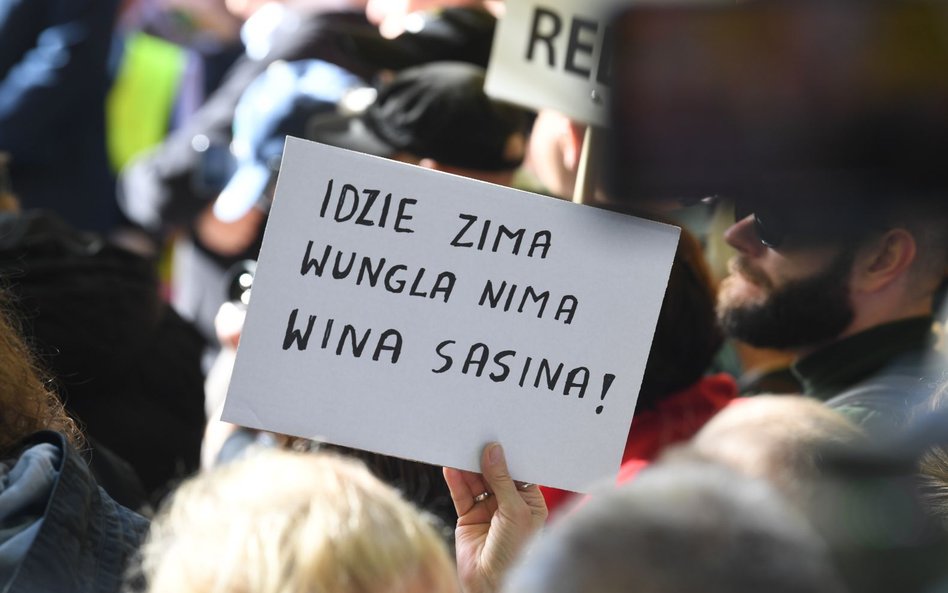 RE
IDZIE ZIMA
WUNGLA NIMA
WINA SASINA!